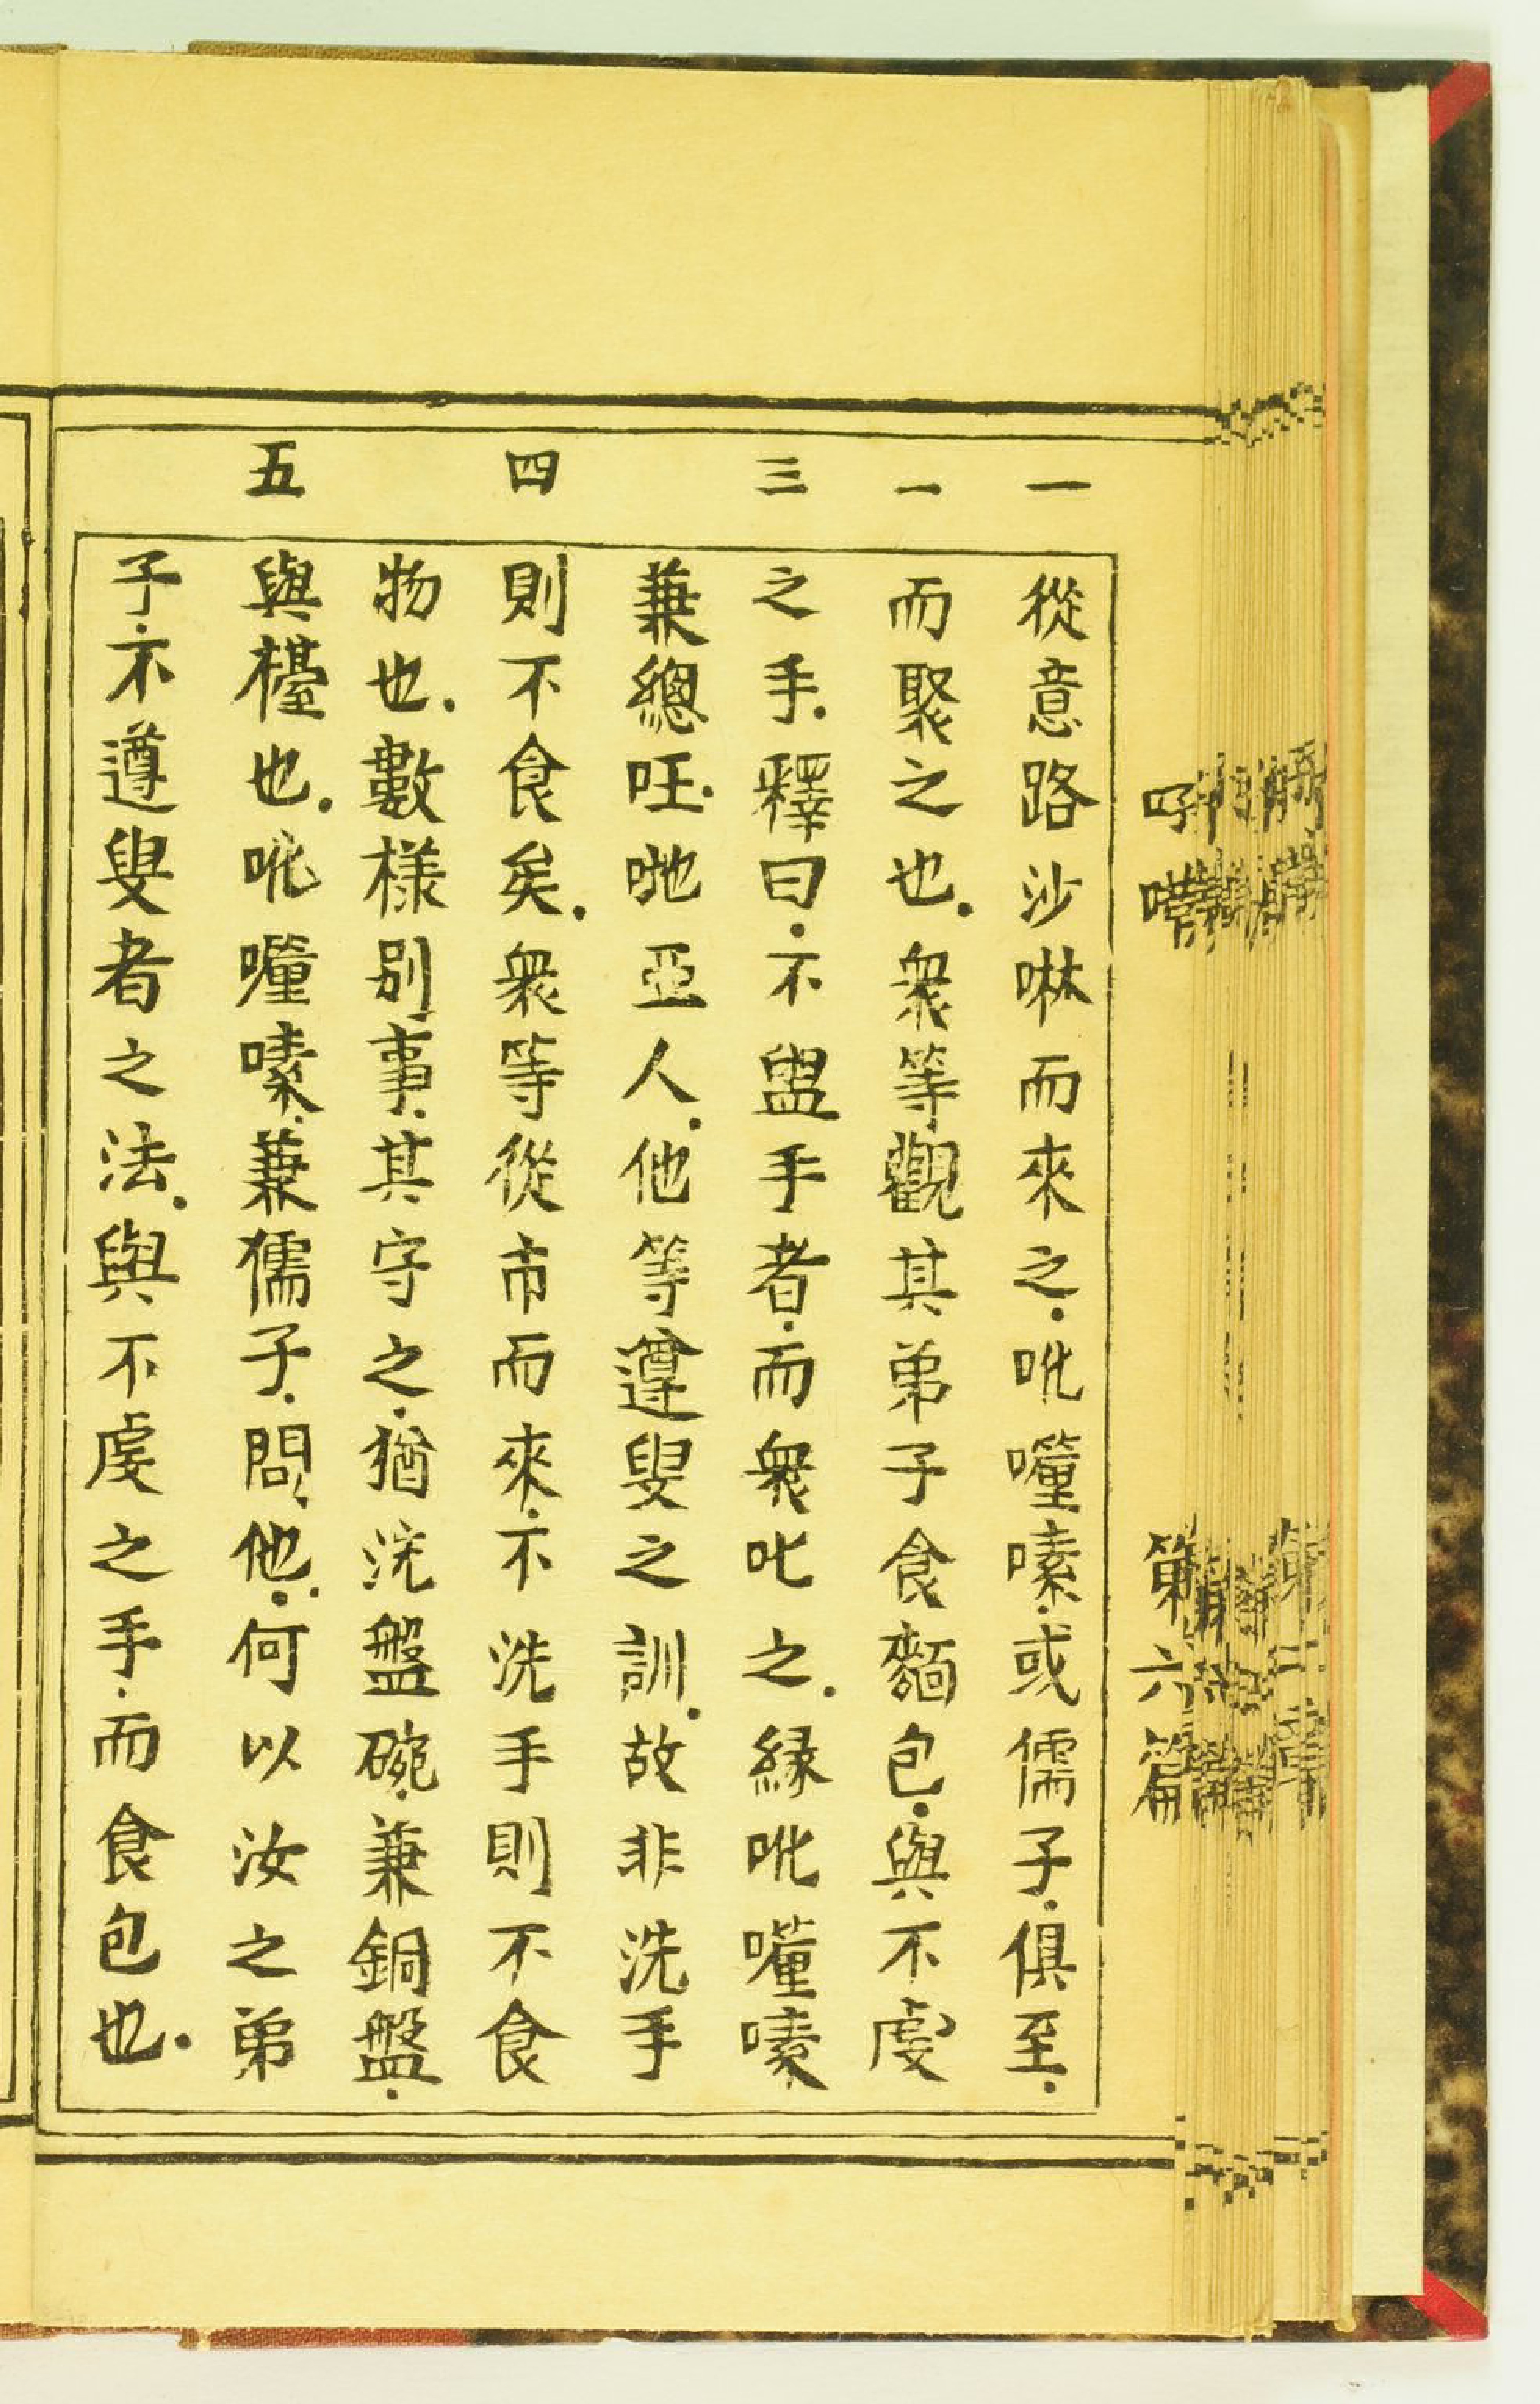 一 從意路沙啉而來之.吡㘔嗉.或儒子.俱至.
一 而聚之也.衆等觀其弟子食麵包.與不虔
三 之手.釋曰.不盥手者.而衆叱之.縁吡㘔嗉.
兼總旺.哋亞人.他等遵叟之訓.故非洗手
四 則不食矣.衆等從市而來.不洗手則不食
物也.數樣别事.其守之.猶洗盤碗.兼銅盤.
五 與檯也.吡㘔嗉.兼儒子.問他.何以汝之弟
子.不遵叟者之法.與不虔之手.而食包也.
第六篇